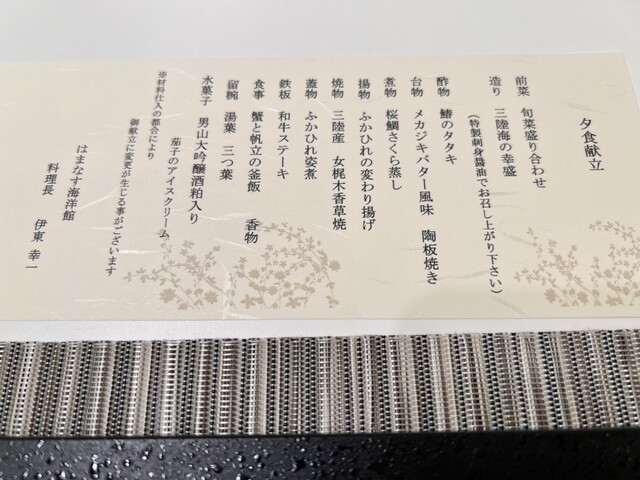 夕食献立
前菜　旬菜盛り合わせ
造り　三陸海の幸盛
(特製刺身醤油でお召し上がり下さい)
酢物　鰆のタタキ
台物　メカジキバター風味　陶板焼き
煮物　桜鯛さくら蒸し
揚物　ふかひれの変わり揚げ
焼物　三陸産　女梶木香草焼
蓋物　ふかひれ姿煮
鉄板　和牛ステーキ
食事　蟹と帆立の釜飯　香物
留椀　湯葉　三つ葉
水菓子　男山大吟醸酒粕入り
茄子のアイスクリーム
※材料仕入の都合により
御献立に変更が生じる事がございます
はまなす海洋館
料理長　伊東　幸一